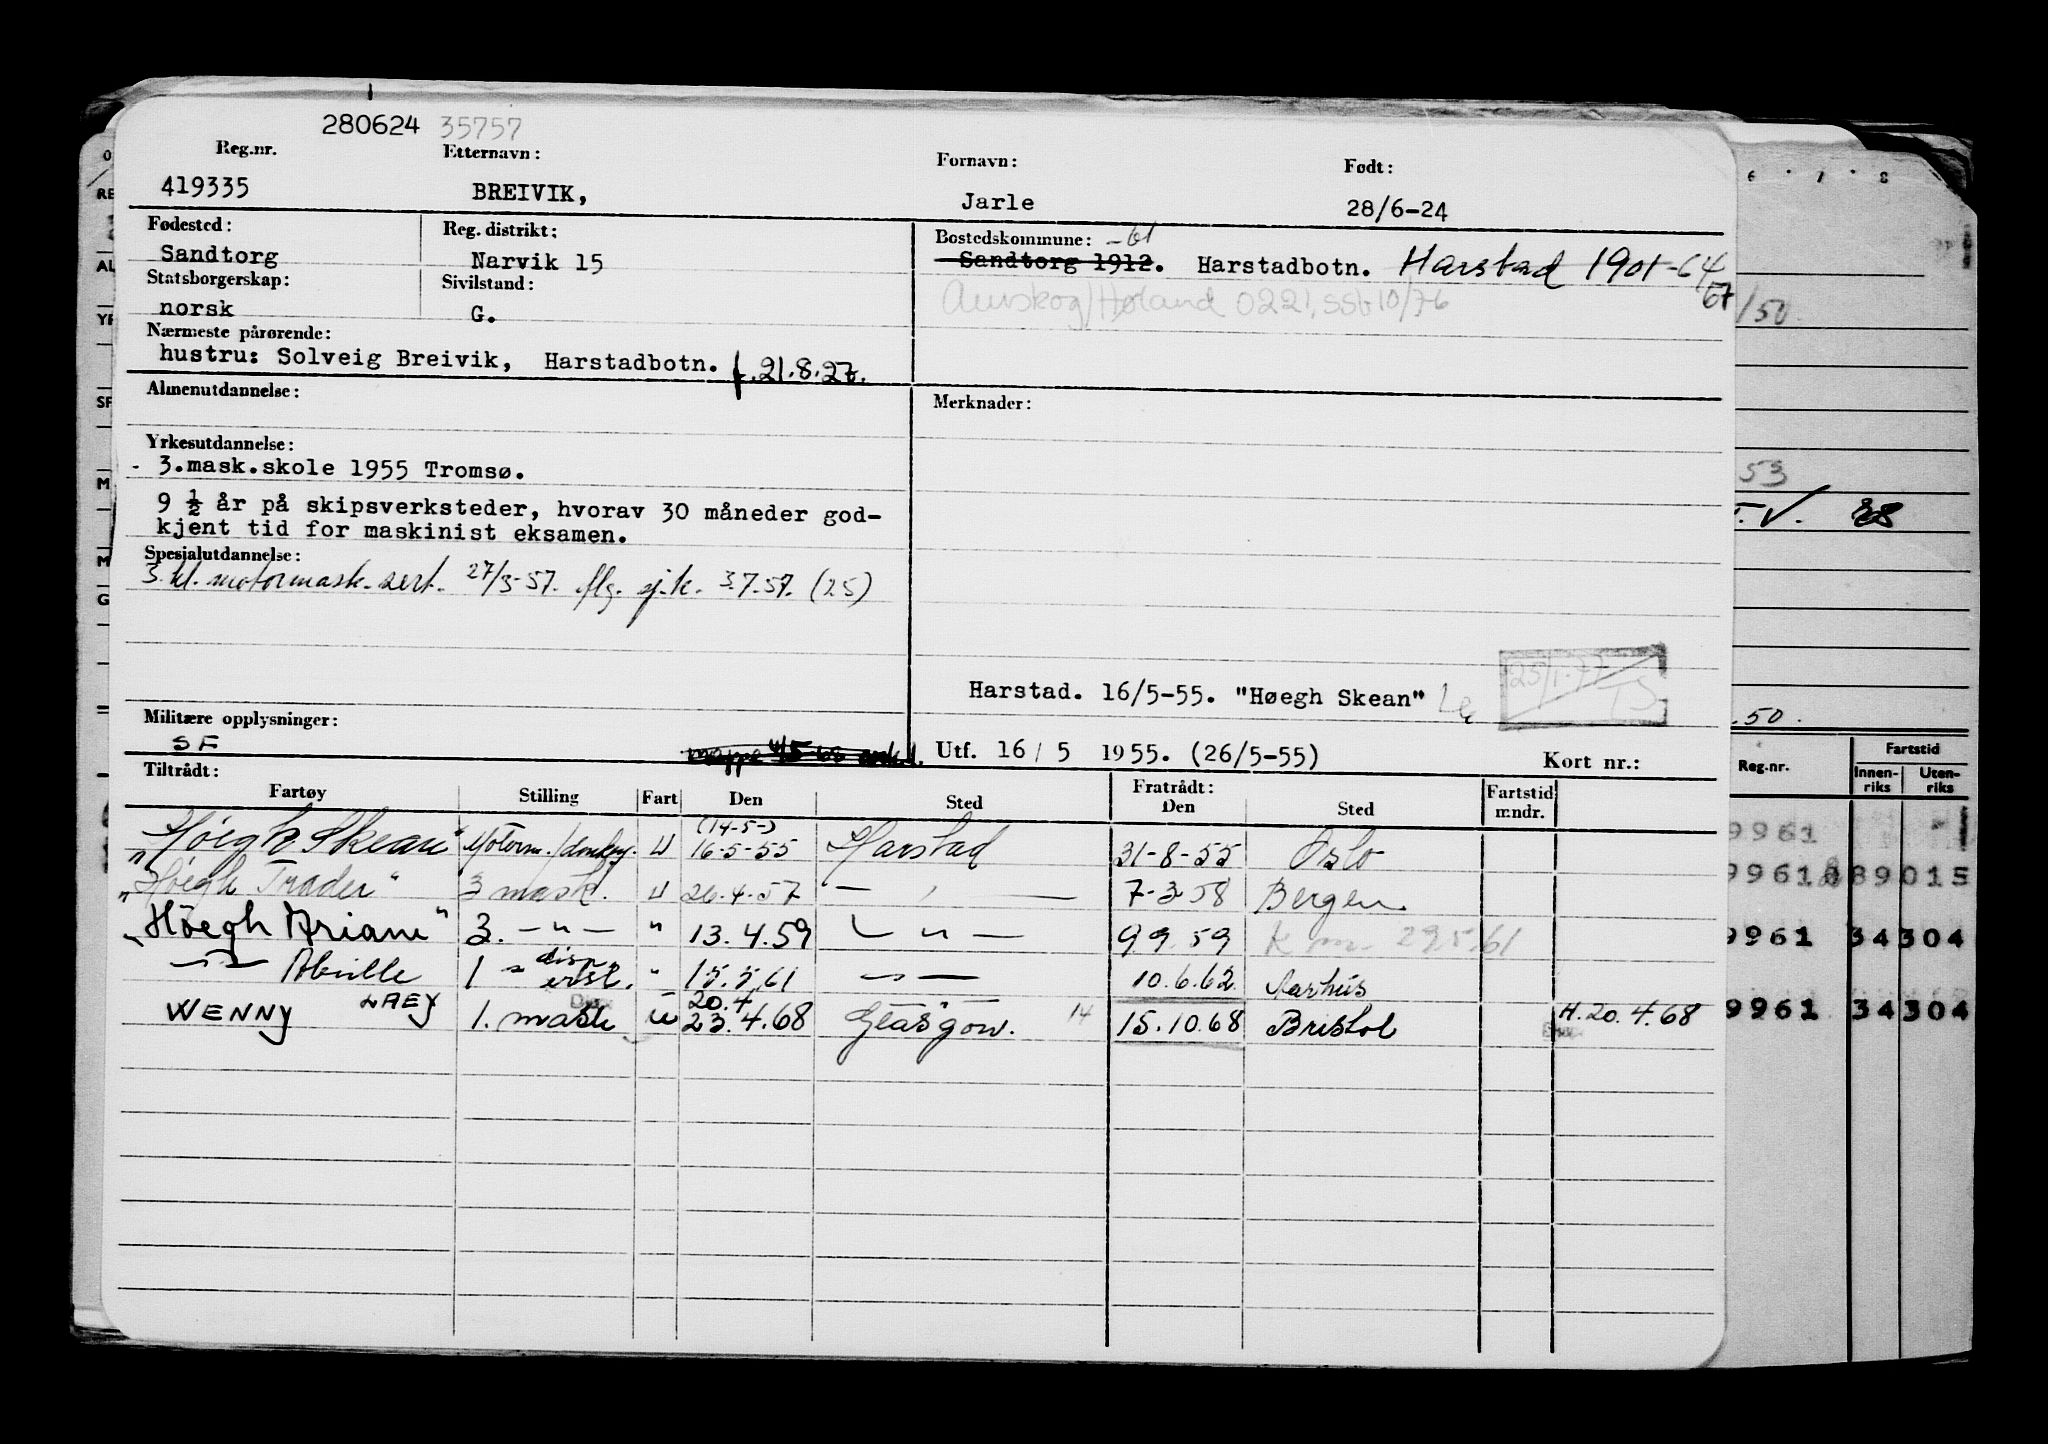 280624 35757
Reg.nr. Etternavn: Fornavn: Født:
419335 BREIVIK, Jarle 28/6-24
Fødested: Reg. distrikt: Bostedskommune: -61
Sandtorg Narvik 15 Sandtorg 1912. Harstadbotn. Harstad 1901-64
67
Statsborgerskap: Sivilstand:
norsk G.
Aurskog/Høland 0221, SSb 10/76
Nærmeste pårørende:
hustru: Solveig Breivik, Harstadbotn. f. 21.8.27.
Almenutdannelse: Merknader:
Yrkesutdannelse:
3.mask.skole 1955 Tromsø.
9 ½ år på skipsverksteder, hvorav 30 måneder god-
kjent tid for maskinist eksamen.
Spesjalutdannelse:
3. kl. motormask. sert. 27/3-57. flg. sj.k. 3.7.57. (25)
Harstad. 16/5-55. "Høegh Skean"
25/1-77
Militære opplysninger:
SF
Utf. 16/5 1955. (26/5-55) Kort nr.:
Tiltrådt: Fratrådt:
Fartøy Stilling Fart Den Sted Den Sted Fartstid mndr.
"Høegh Skean" Motorm./donkey. U (14-5-) 16-5-55 Harstad 31-8-55 Oslo
"Høegh Trader" 3 mask. U 26.4.57 — " — 7-3-58 Bergen.
"Høegh Ariane" 3. — " — " 13.4.59 — " — 9.9.59 29.5.61
— " — Abville 1 " disp. " 15.5.61 — " — 10.6.62 Aarhus
WENNY 1. mask U 20.4 23.4.68 Glasgow. 14 15.10.68 Bristol H. 20.4.68
6 7 8
/50.
53
T.V. 38
.50.
Reg.nr. Fartstid
Innen-riks Uten-riks
9961
9961 89015
9961 34304
9961 34304